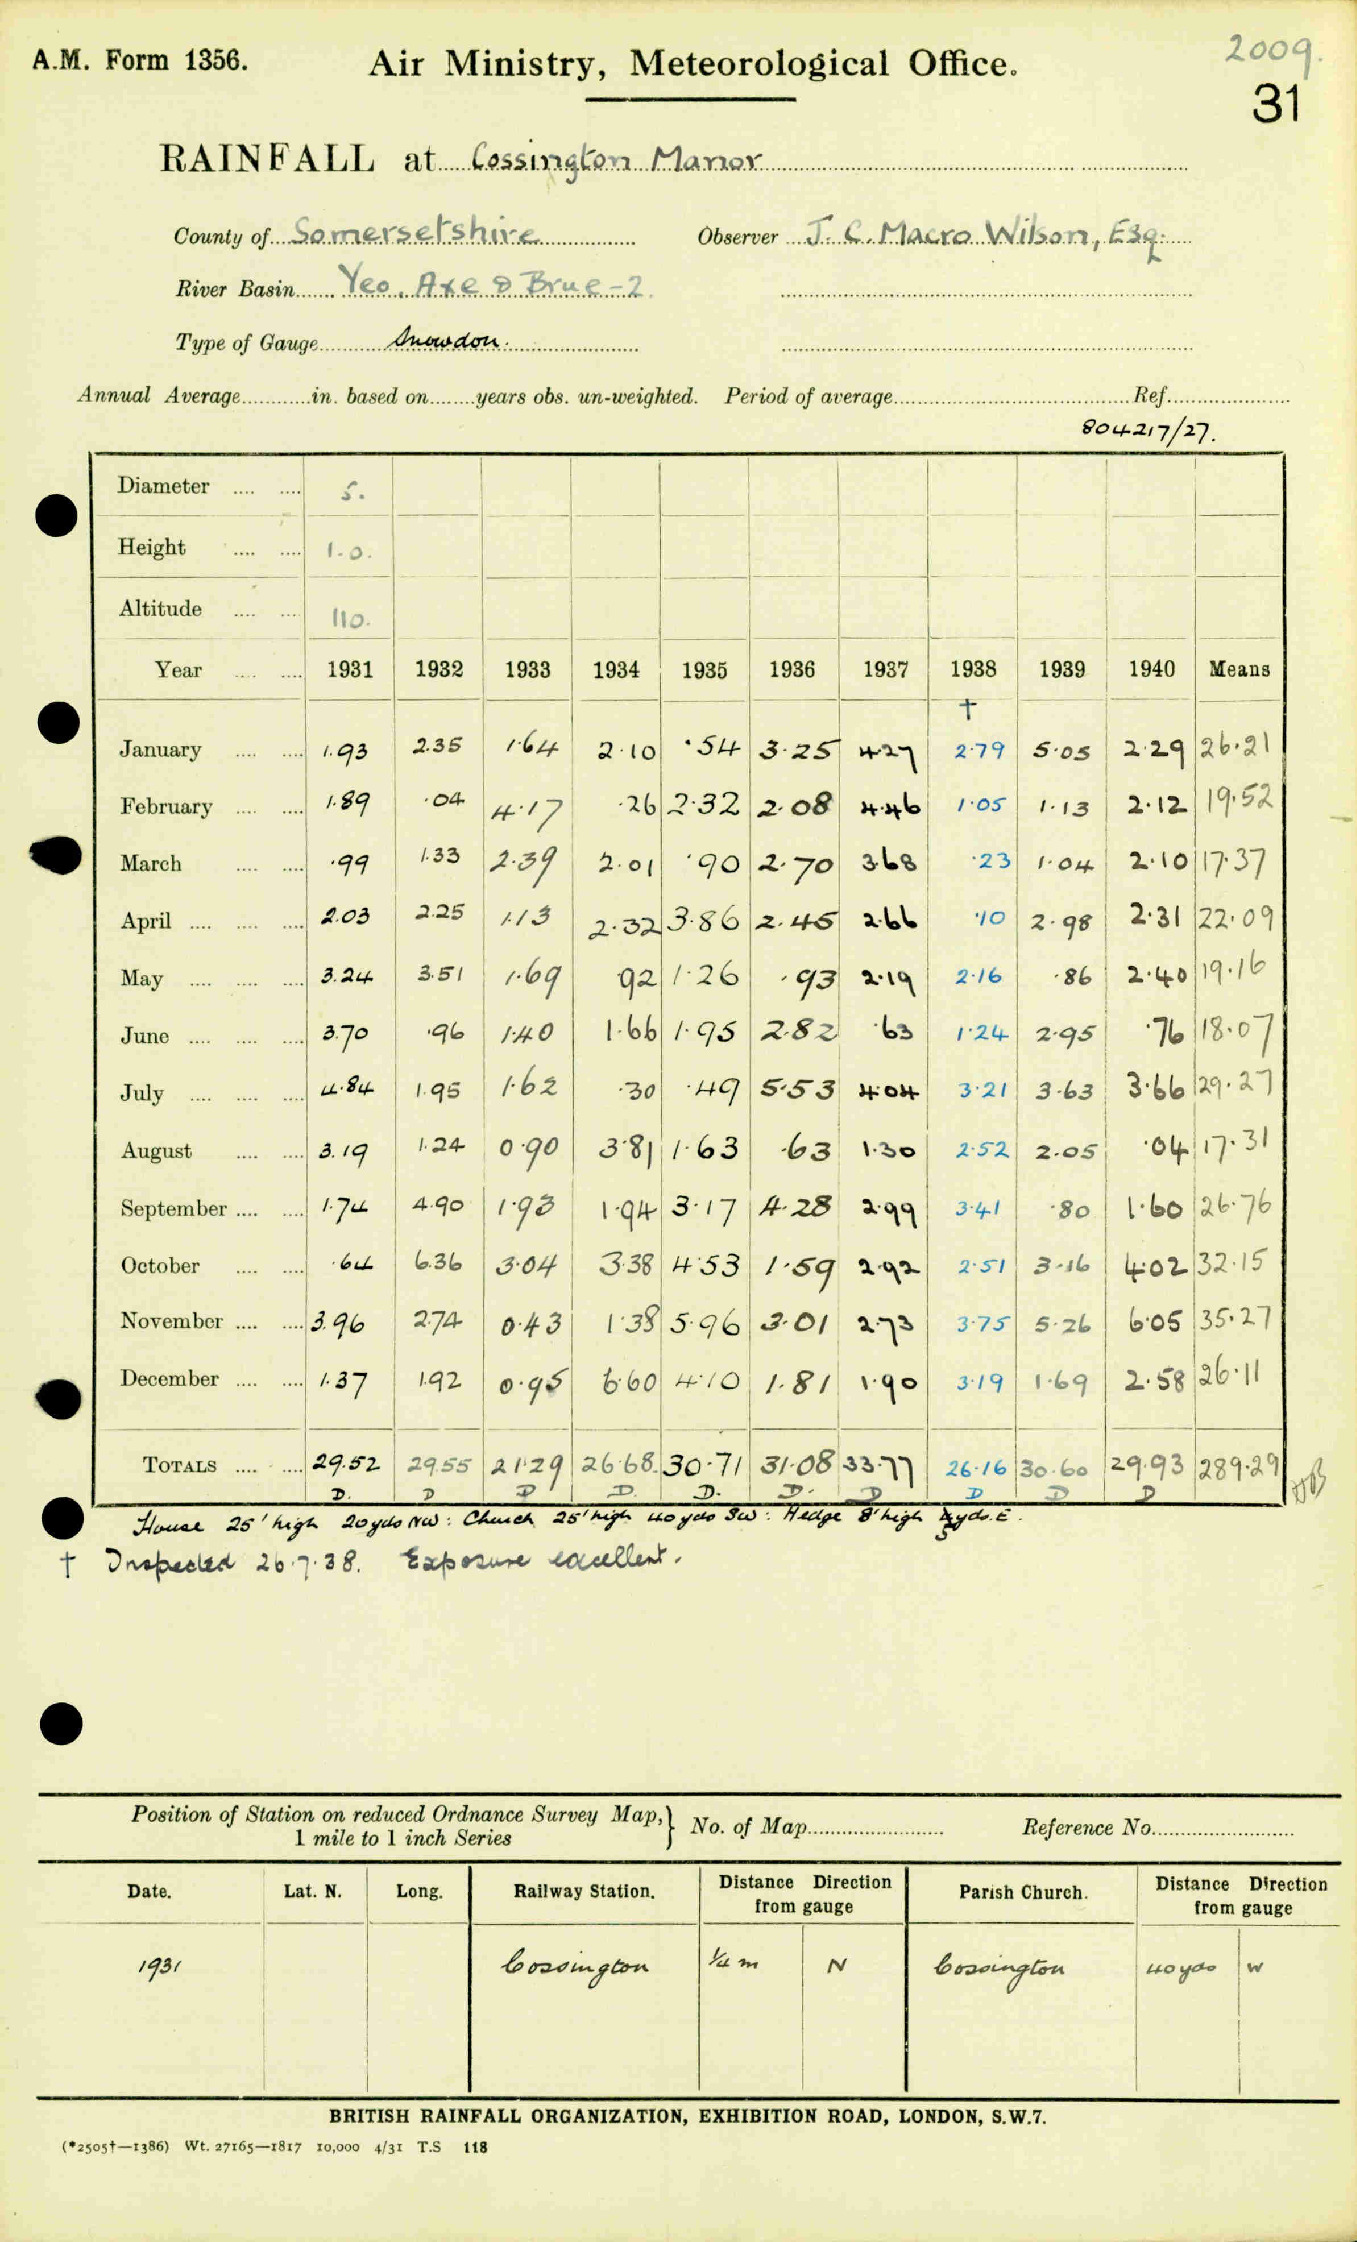 A.M. Form 1356. Air Ministry, Meteorological Office. 2009.
31
RAINFALL at Cossington Manor
County of Somersetshire Observer J. C. Macro Wilson, Esq.
River Basin Yeo, Axe & Brue-2.
Type of Gauge Snowdon.
Annual Average in. based on years obs. un-weighted. Period of average Ref.
804217/27.
Diameter 5.
Height 1.0.
Altitude 110.
Year 1931 1932 1933 1934 1935 1936 1937 1938 1939 1940 Means
†
January 1.93 2.35 1.64 2.10 .54 3.25 4.27 2.79 5.05 2.29 26.21
February 1.89 .04 4.17 .26 2.32 2.08 4.46 1.05 1.13 2.12 19.52
March .99 1.33 2.39 2.01 .90 2.70 3.68 .23 1.04 2.10 17.37
April 2.03 2.25 1.13 2.32 3.86 2.45 2.66 .10 2.98 2.31 22.09
May 3.24 3.51 1.69 .92 1.26 .93 2.19 2.16 .86 2.40 19.16
June 3.70 .96 1.40 1.66 1.95 2.82 .63 1.24 2.95 .76 18.07
July 4.84 1.95 1.62 .30 .49 5.53 4.04 3.21 3.63 3.66 29.27
August 3.19 1.24 0.90 3.81 1.63 .63 1.30 2.52 2.05 .04 17.31
September 1.74 4.90 1.93 1.94 3.17 4.28 2.99 3.41 .80 1.60 26.76
October .64 6.36 3.04 3.38 4.53 1.59 2.92 2.51 3.16 4.02 32.15
November 3.96 2.74 0.43 1.38 5.96 3.01 2.73 3.75 5.26 6.05 35.27
December 1.37 1.92 0.95 6.60 4.10 1.81 1.90 3.19 1.69 2.58 26.11
TOTALS 29.52 29.55 21.29 26.68 30.71 31.08 33.77 26.16 30.60 29.93 289.29
D. D D D. D. D. D D D D
House 25' high 20 yds NW: Church 25' high 40 yds SW: Hedge 8' high yds. E.
† Inspected 26.7.38. Exposure excellent.
Position of Station on reduced Ordnance Survey Map, } No. of Map Reference No.
1 mile to 1 inch Series
Date. Lat. N. Long. Railway Station. Distance Direction from gauge Parish Church. Distance Direction from gauge
1931 Cossington ¼ m N Cossington 40 yds W
BRITISH RAINFALL ORGANIZATION, EXHIBITION ROAD, LONDON, S.W.7.
(*2505†—1386) Wt. 27165—1817 10,000 4/31 T.S 118